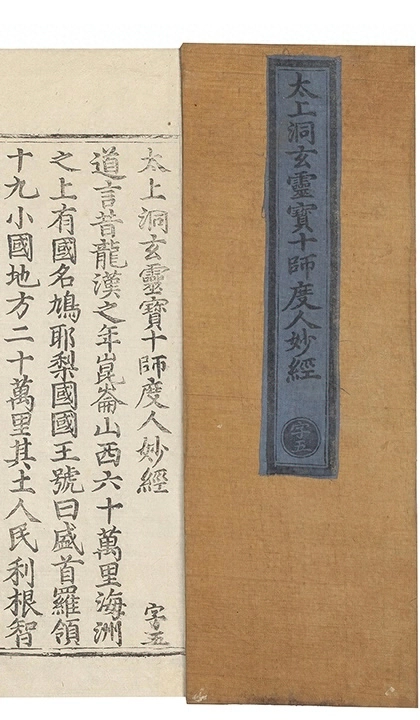 太上洞玄靈寶十師度人妙經
字五
太上洞玄靈寶十師度人妙經 字五
道言昔龍漢之年崑崙山西六十萬里海洲
之上有國名鳩耶梨國國王號曰盛首羅領
十九小國地方二十萬里其土人民利根智